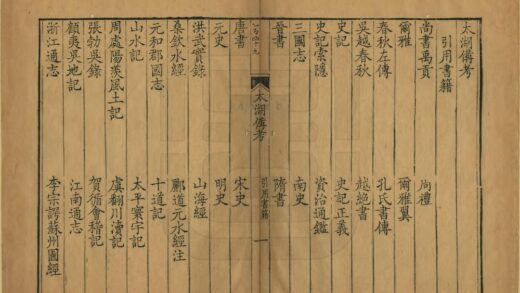 太湖備考
引用書籍
尚書禹貢　周禮
爾雅　爾雅翼
春秋左傳　孔氏書傳
吳越春秋　越絕書
史記　史記正義
史記索隱　資治通鑑
三國志　南史
晉書　隋書
太湖備考　引用書籍　一
唐書　宋史
元史　明史
洪武實錄　山海經
桑欽水經　酈道元水經注
元和郡國志　十道記
山水記　太平寰宇記
周處陽羨風土記　虞翻川瀆記
張勃吳錄　賀循會稽記
顧夷吳地記　江南通志
浙江通志　李宗諤蘇州圖經